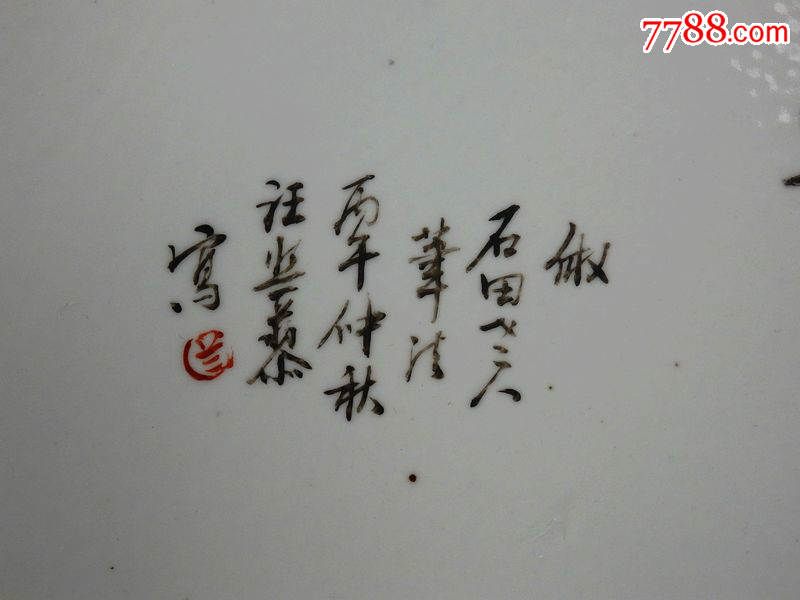 7788.com
倣
石田老人
筆法
丙午仲秋
汪照藜
寫